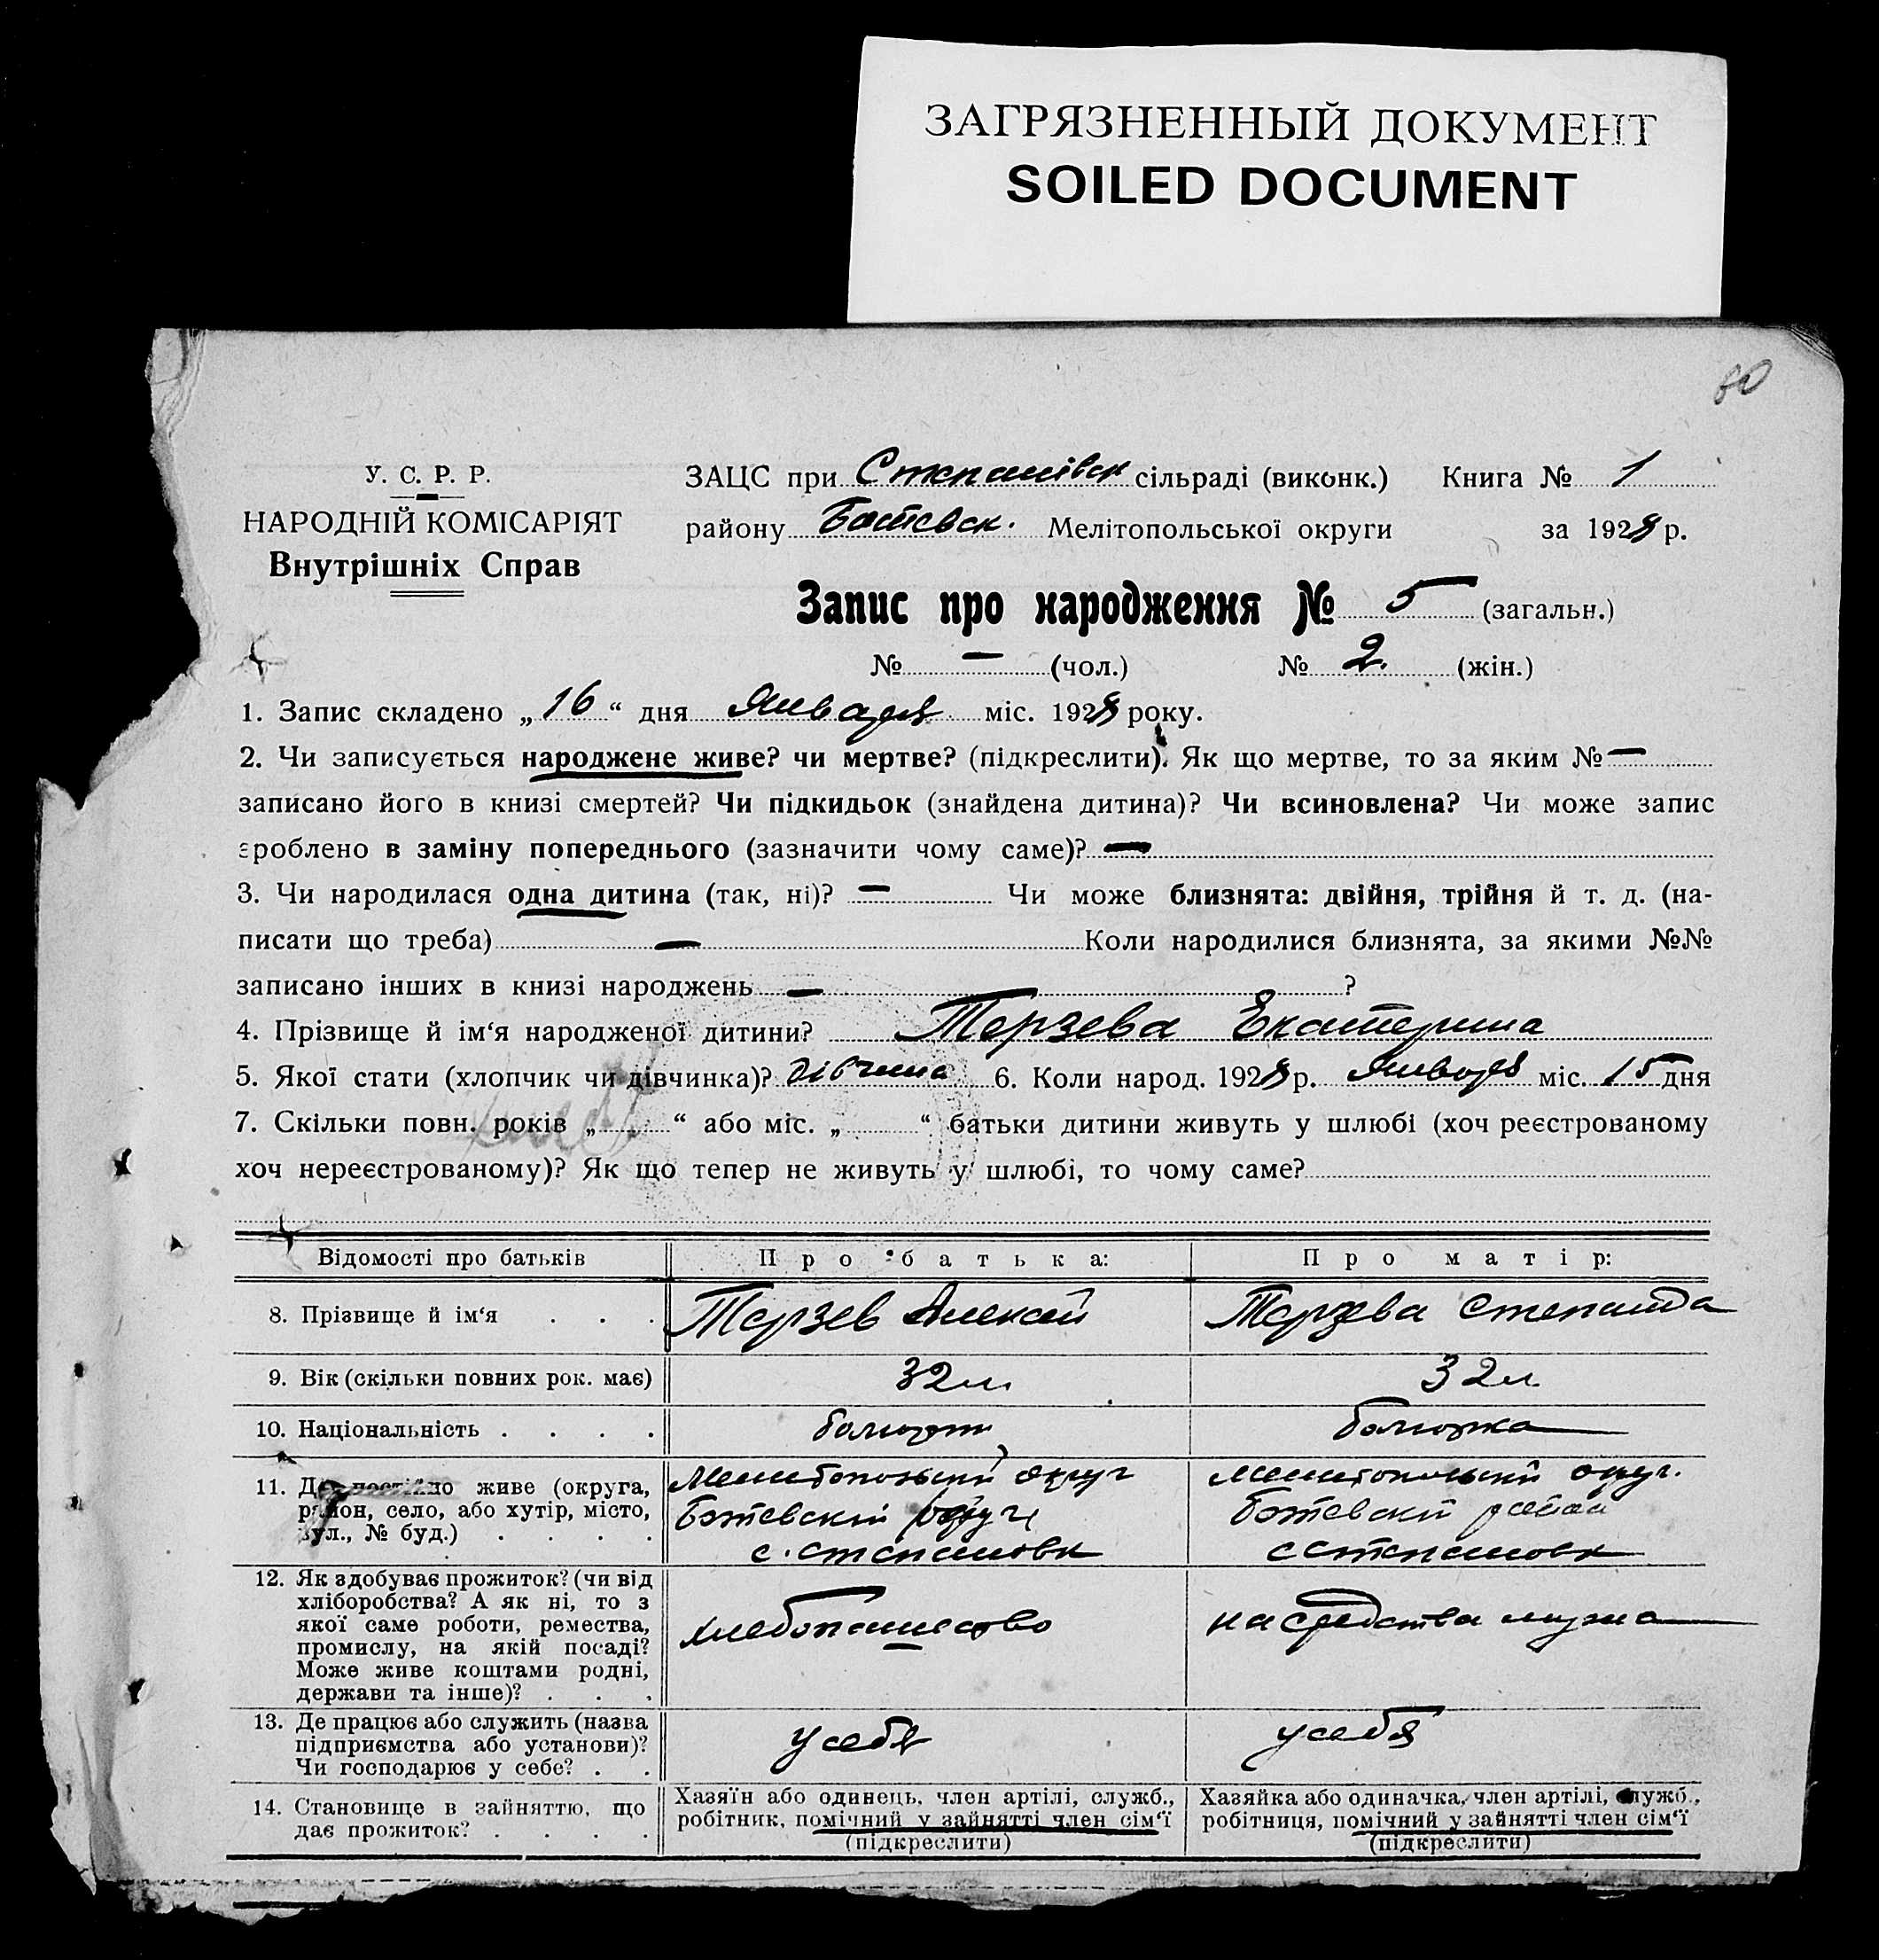 ЗАГРЯЗНЕННЫЙ ДОКУМЕНТ
SOILED DOCUMENT
80
У. С. Р. Р.
НАРОДНІЙ КОМІСАРІЯТ
Внутрішніх Справ
ЗАЦС при Степанівск сільраді (виконк.) Книга № 1
району Ботевск. Мелітопольської округи за 1928 р.
Запис про народження № 5 (загальн.)
№ — (чол.) № 2. (жін.)
1. Запис складено „16“ дня Января міс. 1928 року.
2. Чи записується народжене живе? чи мертве? (підкреслити). Як що мертве, то за яким № —
записано його в книзі смертей? Чи підкидьок (знайдена дитина)? Чи всиновлена? Чи може запис
зроблено в заміну попереднього (зазначити чому саме)? —
3. Чи народилася одна дитина (так, ні)? — Чи може близнята: двійня, трійня й т. д. (на-
писати що треба) — Коли народилися близнята, за якими №№
записано інших в книзі народжень — ?
4. Прізвище й ім‘я народженої дитини? Терзева Екатерина
5. Якої стати (хлопчик чи дівчинка)? дівчина 6. Коли народ. 1928 р. Января міс. 15 дня
7. Скільки повн. років „ “ або міс. „ “ батьки дитини живуть у шлюбі (хоч реєстрованому
хоч нереєстрованому)? Як що тепер не живуть у шлюбі, то чому саме?
Відомості про батьків Про батька: Про матір:
8. Прізвище й ім‘я . . . Терзев Алексей Терзева Степанида
9. Вік (скільки повних рок. має) 32 л. 32 л.
10. Національність . . . . болгарин болгарка
11. Де постійно живе (округа, район, село, або хутір, місто, вул., № буд.) . . . .
Мелитопольский округ
Ботевский
с. Степановк
Мелитопольский округ.
Ботевский район
с Степановк
12. Як здобуває прожиток? (чи від
хліборобства? А як ні, то з
якої саме роботи, ремества,
промислу, на якій посаді?
Може живе коштами родні,
держави та інше)? . . .
хлебопашество
на средства мужа
13. Де працює або служить (назва
підприємства або установи)?
Чи господарює у себе? . .
у себя
у себя
14. Становище в зайняттю, що
дає прожиток? . . . .
Хазяїн або одинець, член артілі, служб.,
робітник, помічний у зайнятті член сім‘ї
(підкреслити)
Хазяйка або одиначка, член артілі, служб.,
робітниця, помічний у зайнятті член сім‘ї
(підкреслити)